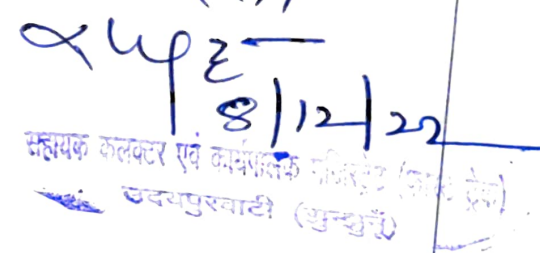 8/12/22
सहायक कलक्टर एवं कार्यपालक मजिस्ट्रेट (फास्ट ट्रेक)
उदयपुरवाटी (झुन्झुनूं)